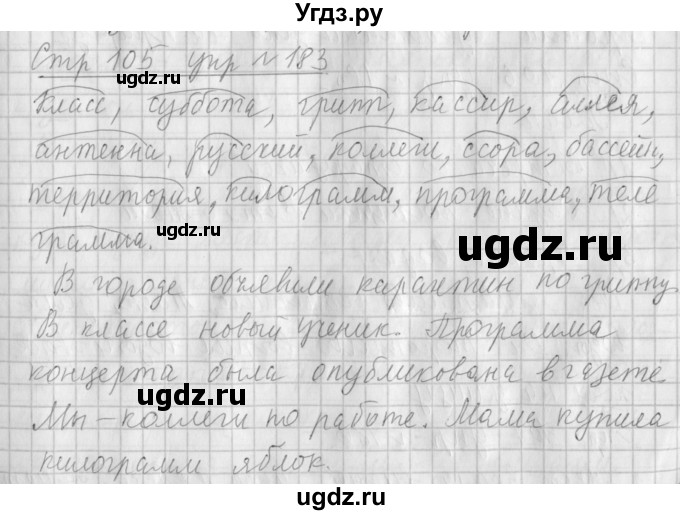 Угдз.ру
Стр 105 упр № 183
ugdz.ru
ugdz.ru
Класс, суббота, грипп, кассир, аллея,
антенна, русский, коллеги, ссора, бассейн,
территория, килограмм, программа, теле
грамма.
ugdz.ru
ugdz.ru
В городе объявили карантин по гриппу.
В классе новый ученик. Программа
концерта была опубликована в газете.
ugdz.ru
Мы – коллеги по работе. Мама купила
килограмм яблок.
ugdz.ru
ugdz.ru